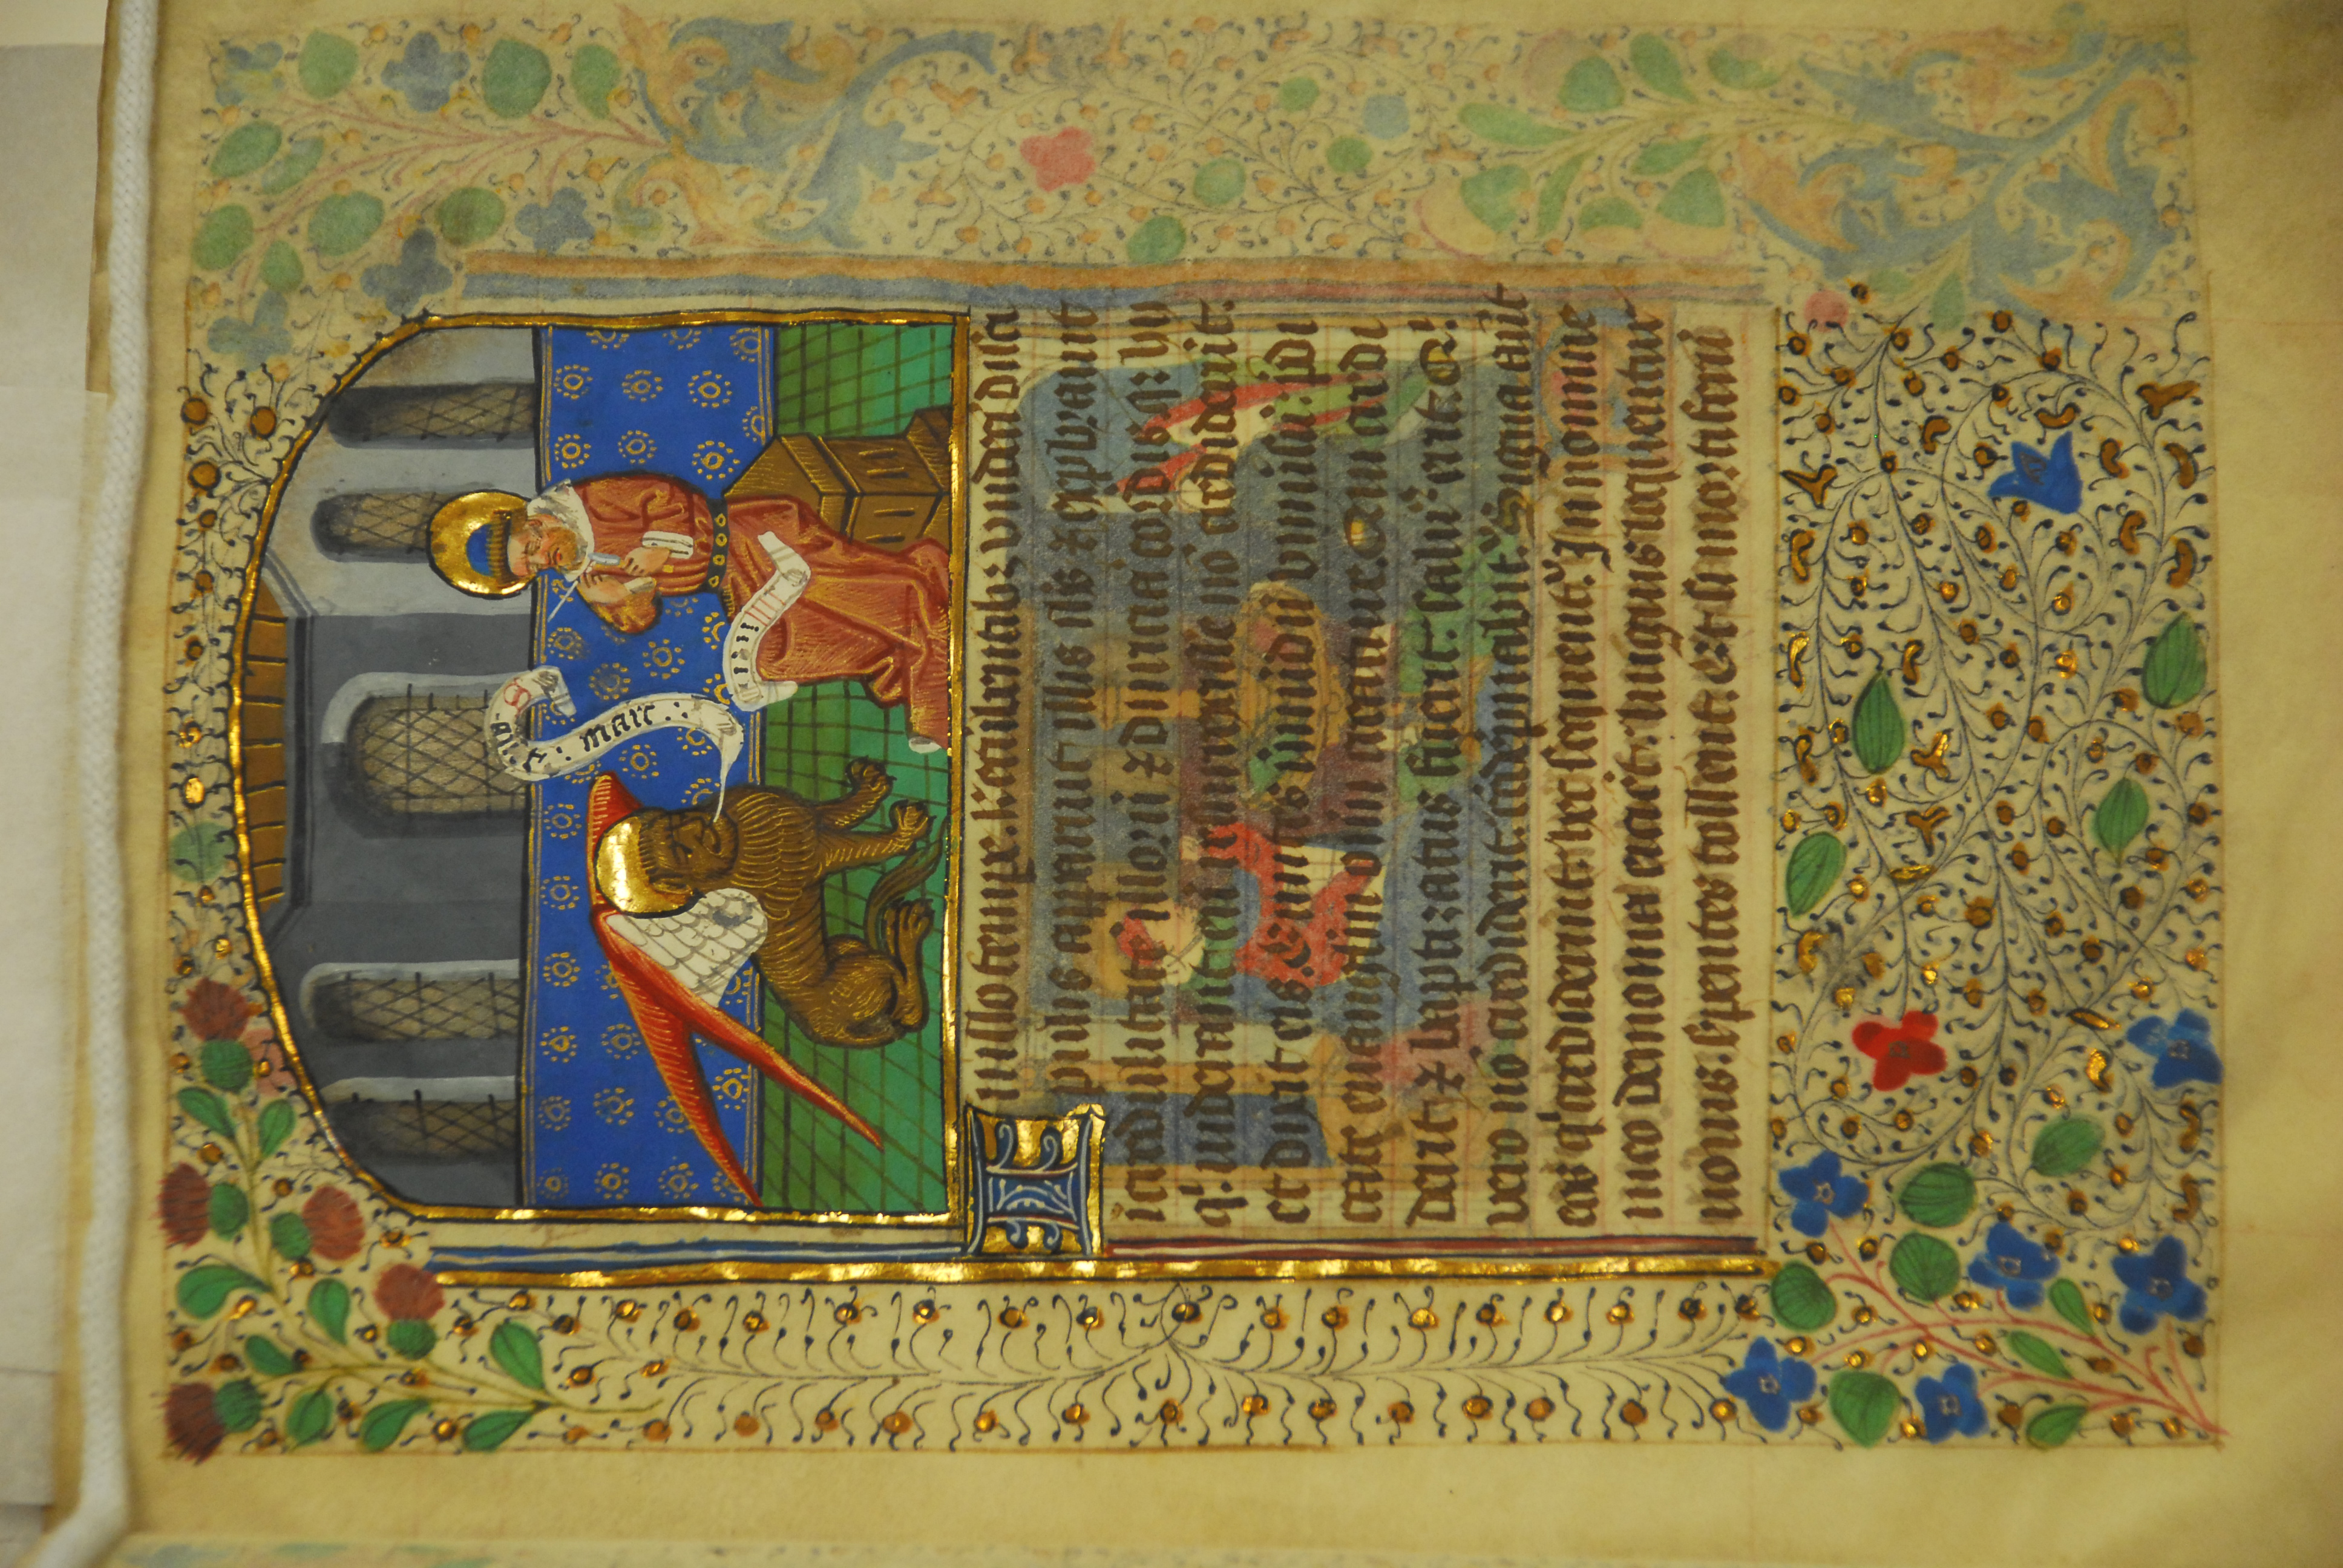 S marc :
In illo tempe. Recubentibz vndeci disci
pulis apparuit illis ihs & exprobrauit
incredulitate illoru & duritia cordis eoz: hii
q' viderant eu resurrexisse no crediderut.
et dixit eis. Euntes in mundu vniusu: pdi
cate euangeliu omni creature. Qui credi
derit & baptizatus fuerit: saluus erit. Qi
vero no crediderit: codepnabit'. Signa aut
eos q' crediderint: hec sequent'. In nomine
meo demonia eicient: linguis loquentur
nouis. serpentes tollent: et si mortiferu